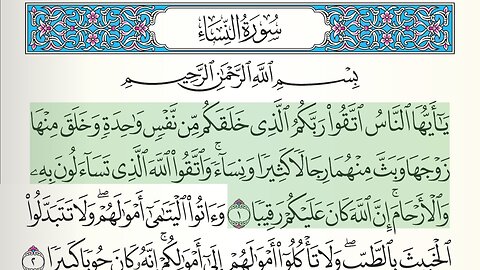 سُورَةُ النِّسَاءِ
بِسْمِ ٱللَّهِ ٱلرَّحْمَٰنِ ٱلرَّحِيمِ
يَٰٓأَيُّهَا ٱلنَّاسُ ٱتَّقُوا۟ رَبَّكُمُ ٱلَّذِى خَلَقَكُم مِّن نَّفْسٍ وَٰحِدَةٍ وَخَلَقَ مِنْهَا
زَوْجَهَا وَبَثَّ مِنْهُمَا رِجَالًا كَثِيرًا وَنِسَآءً ۚ وَٱتَّقُوا۟ ٱللَّهَ ٱلَّذِى تَسَآءَلُونَ بِهِۦ
وَٱلْأَرْحَامَ ۚ إِنَّ ٱللَّهَ كَانَ عَلَيْكُمْ رَقِيبًا ١ وَءَاتُوا۟ ٱلْيَتَٰمَىٰٓ أَمْوَٰلَهُمْ ۖ وَلَا تَتَبَدَّلُوا۟
ٱلْخَبِيثَ بِٱلطَّيِّبِ ۖ وَلَا تَأْكُلُوٓا۟ أَمْوَٰلَهُمْ إِلَىٰٓ أَمْوَٰلِكُمْ ۚ إِنَّهُۥ كَانَ حُوبًا كَبِيرًا ٢